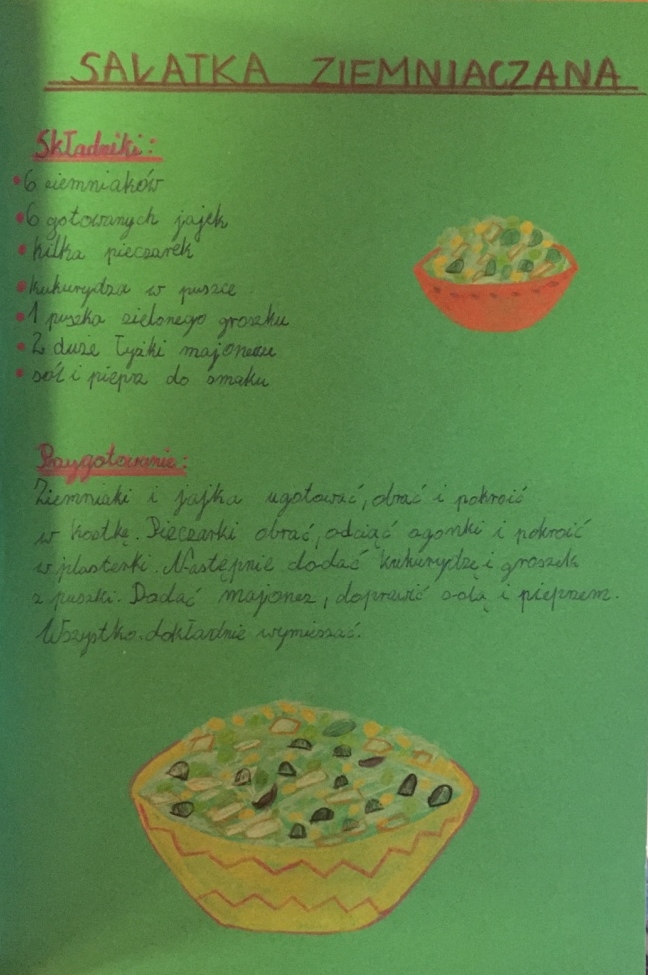 SAŁATKA ZIEMNIACZANA
Składniki:
• 6 ziemniaków
• 6 gotowanych jajek
• kilka pieczarek
• kukurydza w puszce
• 1 puszka zielonego groszku
• 2 duże łyżki majonezu
• sól i pieprz do smaku
Przygotowanie:
Ziemniaki i jajka ugotować, obrać i pokroić
w kostkę. Pieczarki obrać, odciąć ogonki i pokroić
w plasterki. Następnie dodać kukurydzę i groszek
z puszki. Dodać majonez, doprawić solą i pieprzem.
Wszystko dokładnie wymieszać.